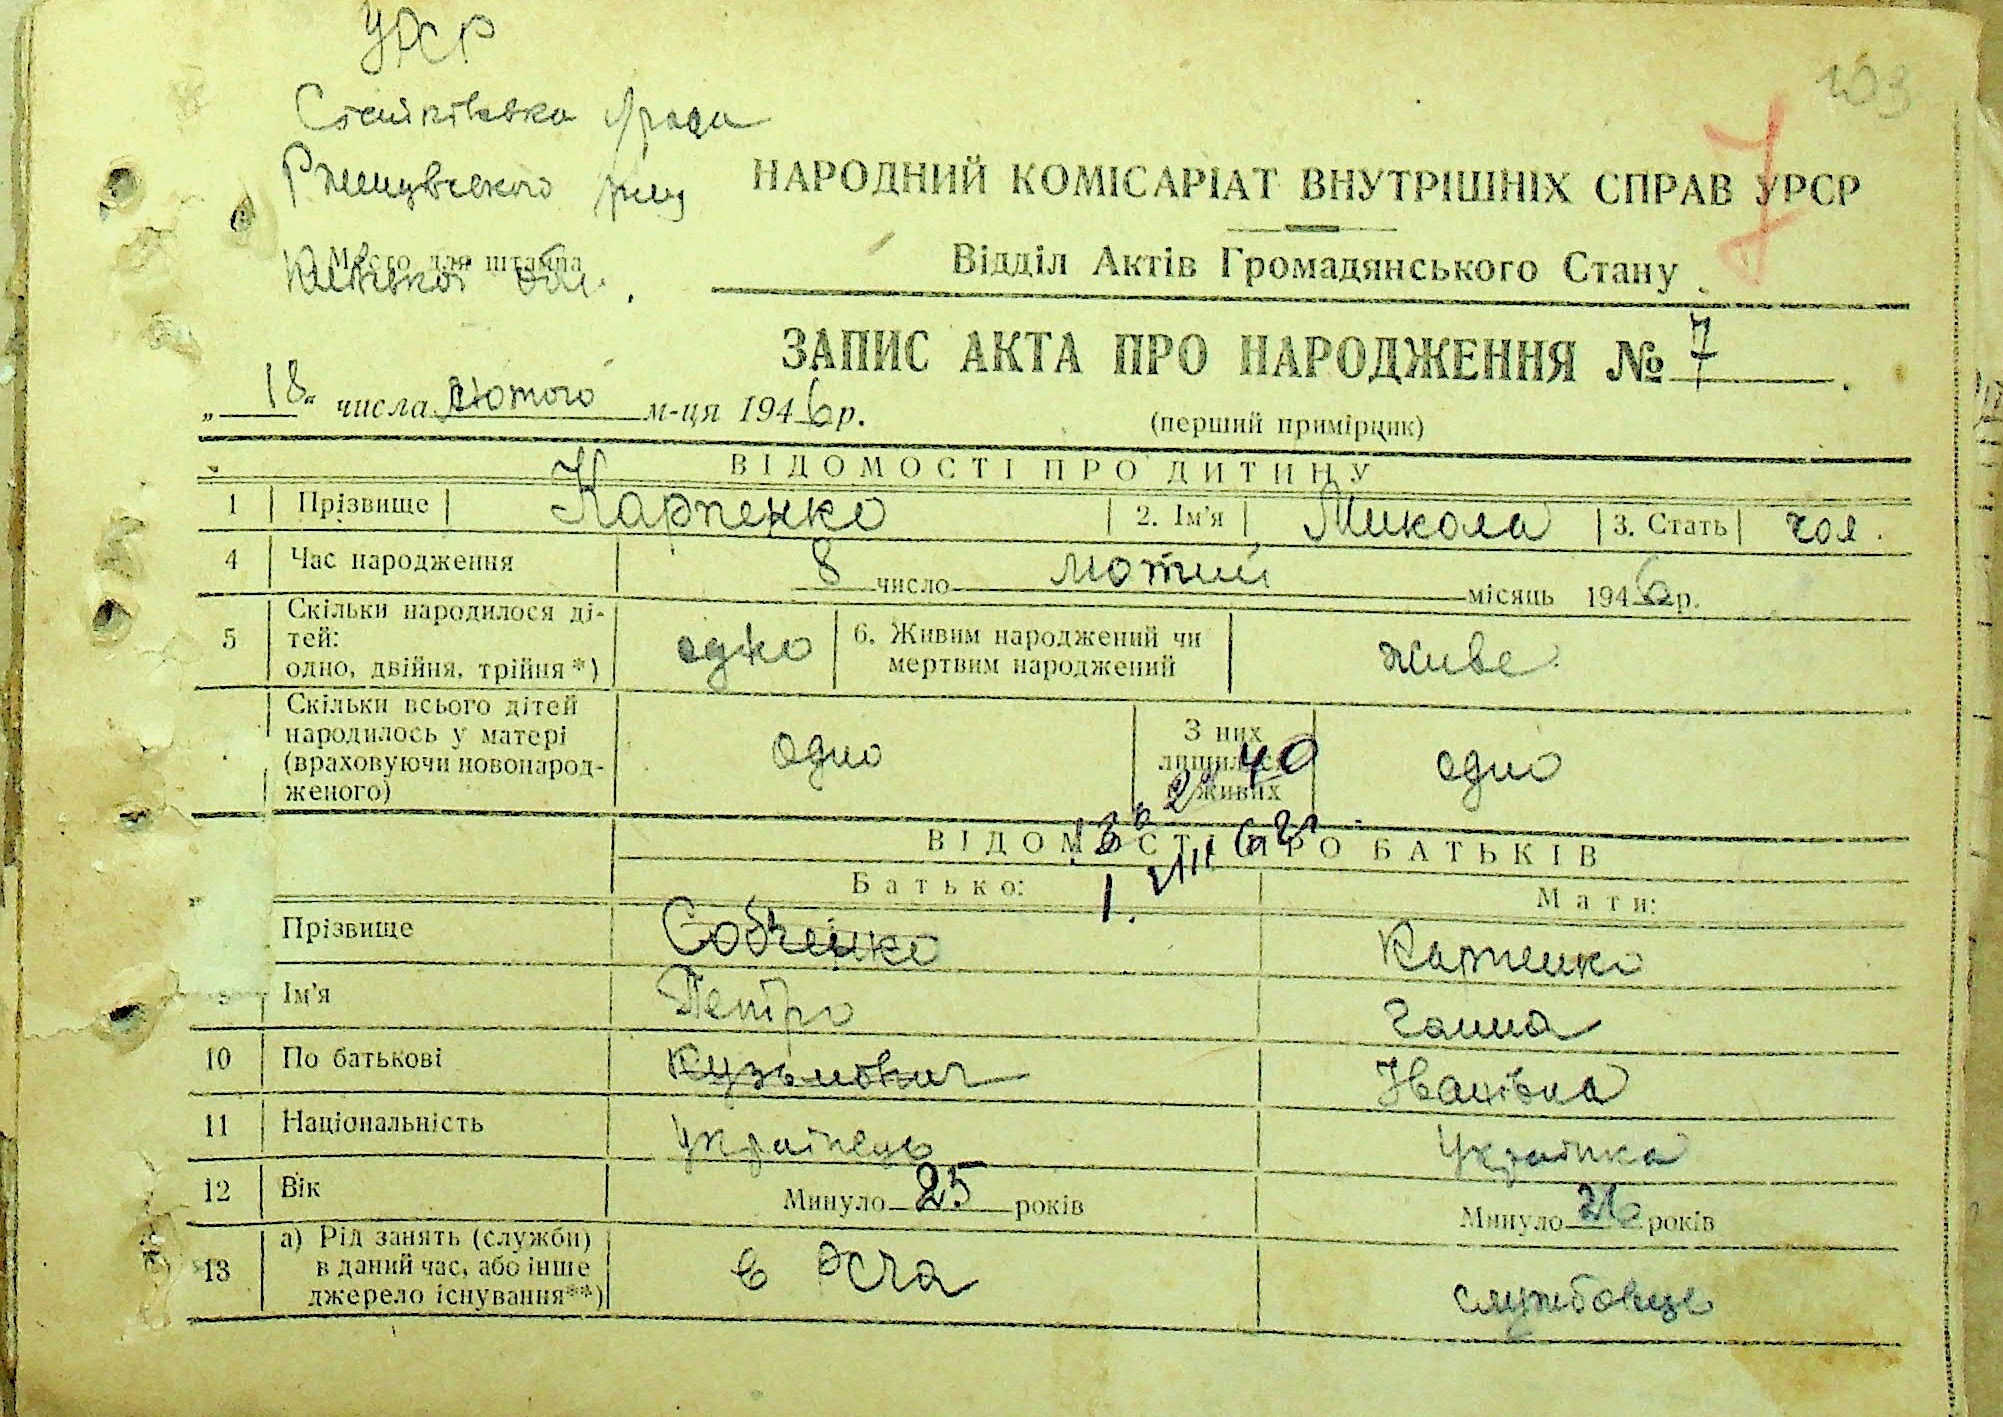 УРСР
103
Стайківська с/рада
Ржищівського р-ну
7
НАРОДНИЙ КОМІСАРІАТ ВНУТРІШНІХ СПРАВ УРСР
Місто для штампа
Київської обл.
Відділ Актів Громадянського Стану
ЗАПИС АКТА ПРО НАРОДЖЕННЯ № 7.
„18“ числа лютого м-ця 1946 р.
(перший примірцик)
ВІДОМОСТІ ПРО ДИТИНУ
1 Прізвище Карпенко 2. Ім'я Микола 3. Стать чол.
4 Час народження 8 число лютий місяць 1946 р.
5 Скільки народилося ді-
тей:
одно, двійня, трійня *) одно 6. Живим народжений чи
мертвим народжений живе.
Скільки всього дітей
народилось у матері
(враховуючи новонарод-
женого) одно З них
лишилося
живих одно
40
ВІДОМОСТІ ПРО БАТЬКІВ
Батько: Мати:
Прізвище Собченко Карпенко
Ім'я Петро Ганна
10 По батькові Кузьмович Іванівна
11 Національність Українець Українка
12 Вік Минуло 25 років Минуло 26 років
13 а) Рід занять (служби)
в даний час, або інше
джерело існування**) службовець